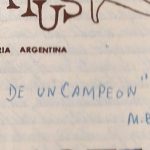 RIA ARGENTINA
DE UN CAMPEON"
M.B